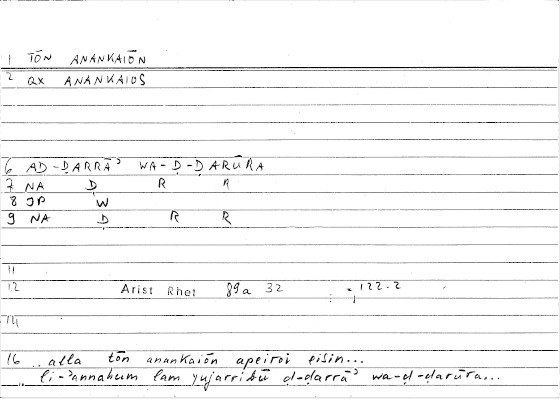 1 TŌN ANANKAIŌN
2 QX ANANKAIOS
6 AD-ḌARRĀʾ WA-Ḍ-ḌARŪRA
7 NA Ḍ R R
8 JP W
9 NA Ḍ R R
11
12 Arist Rhet 89a 32 122.2
14
16 .. alla tōn anankaiōn apeiroi eisin...
.. li-ʾannahum lam yujarribū ḍ-ḍarrāʾ wa-ḍ-ḍarūra...